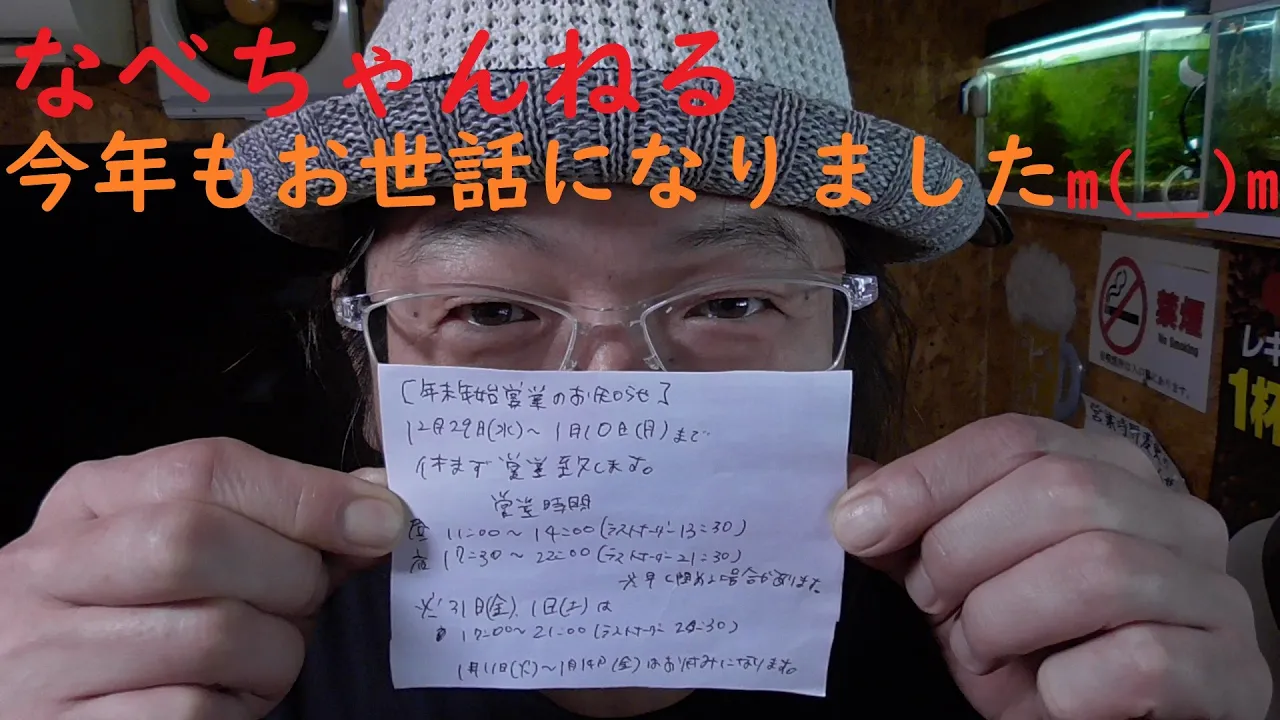 なべちゃんねる
今年もお世話になりましたm(__)m
[年末年始営業のお知らせ]
12月29日(水)〜1月10日(月)まで
休まず営業致します。
営業時間
昼 11:00〜14:00(ラストオーダー13:30)
夜 17:30〜22:00(ラストオーダー21:30)
※早く閉める場合があります
※31日(金)、1日(土)は
17:00〜21:00(ラストオーダー20:30)
1月11日(火)〜1月14日(金)はお休みになります。
禁煙
No Smoking
レキ
1杯
営業時間変更